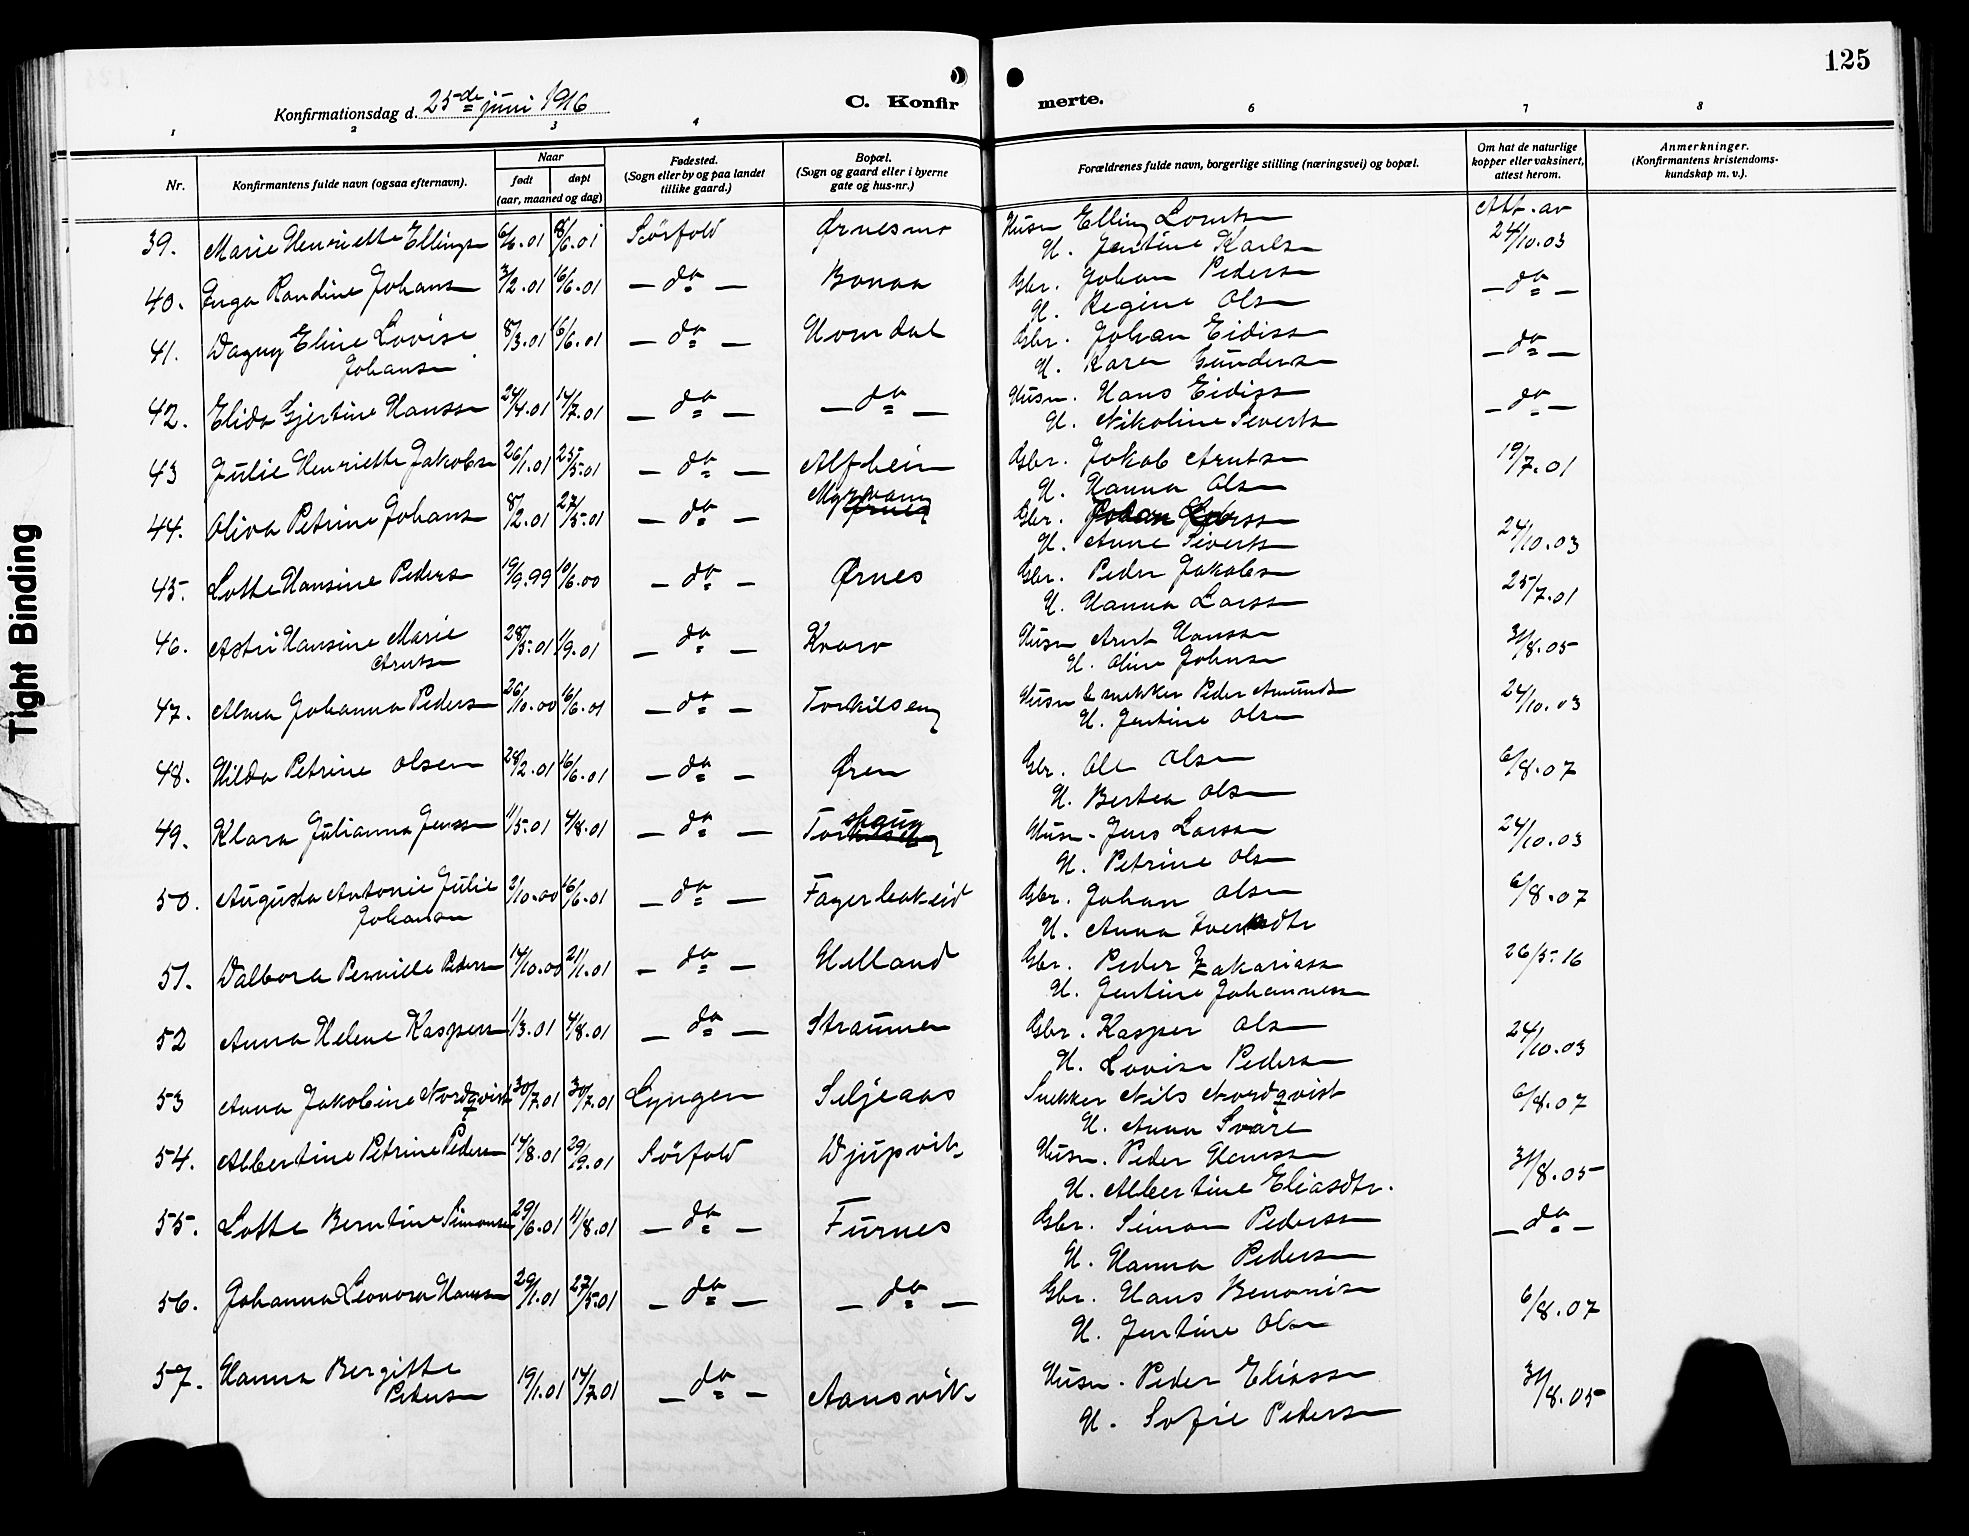 125
Konfirmationsdag d. 25de juni 1916
C. Konfirmerte.
1 2 3 4 6 7 8
Nr. Konfirmantens fulde navn (ogsaa efternavn). Naar født døpt (aar, maaned og dag) Fødested. (Sogn eller by og paa landet tillike gaard.) Bopæl. (Sogn og gaard eller i byerne gate og hus-nr.) Forældrenes fulde navn, borgerlige stilling (næringsvei) og bopæl. Om hat de naturlige kopper eller vaksinert, attest herom. Anmerkninger. (Konfirmantens kristendomskundskap m. v.).
39. Marie Henriette Ellings 6/6.01 8/6.01 Sørfold Ørnesmo Husm Elling Lornts Att. av
H. Jentine Karls 24/10.03
40. Inga Randine Johans 3/2.01 16/6.01 — do — Bonaa Gbr. Johan Peders — do —
H. Regine Ols
41. Dagny Eline Lovise 8/3.01 16/6.01 — do — Homdal Gbr. Johan Eidiss — do —
Johans H. Karen Gunders
42. Elida Gjertine Hanss 24/4.01 14/7.01 — do — — do — Husm. Hans Eidiss — do —
H. Nikoline Siverts
43 Julie Henriette Jakobs 26/1.01 25/5.01 — do — Alfheim Gbr. Jakob Arnts 19/7.01
H. Hanna Ols
44. Oliva Petrine Johans 8/2.01 27/5.01 — do — Myrvang Gbr. Johan
H. Anne Siverts 24/10.03
45. Lotte Hansine Peders 19/9.99 10/6.00 — do — Ørnes Gbr. Peder Jakobs 25/7.01
H. Hanna Larss
46. Astri Hansine Marie 28/5.01 1/9.01 — do — Kvarv Husm Arnt Hanss 31/8.05
Arnts H. Oline Johns
47. Alma Johanna Peders 26/10.00 16/6.01 — do — Torkilseng Husm & snekker Peder Amunds 24/10.03
H. Jentine Ols
48. Hilda Petrine Olsen 28/2.01 16/6.01 — do — Øren Gbr. Ole Ols 6/8.07
H. Bertea Ols
49. Klara Julianna Jenss 11/5.01 4/8.01 — do — Torshaug Husm. Jens Larss 24/10.03
H. Petrine Ols
50. Augusta Antonie Julie 2/10.00 16/6.01 — do — Fagerbakeid Gbr. Johan Ols 6/8.07
Johanson H. Anna Iversdtr
51. Valbora Pernille Peders 14/10.00 21/1.01 — do — Helland Gbr. Peder Zakariass 26/5.16
H. Jentine Johanness
52 Anna Helene Kaspers 1/3.01 4/8.01 — do — Straumen Gbr. Kasper Ols 24/10.03
H. Lovise Peders
53 Anna Jakobine Nordqvist 30/7.01 30/7.01 Lyngen Seljeaas Snekker Nils Nordqvist 6/8.07
H. Anna Svare
54. Albertine Petrine Peders 14/8.01 29/9.01 Sørfold Djupvik Husm. Peder Hanss 31/8.05
H. Albertine Eliasdtr.
55. Lotte Berntine Simons 29/6.01 11/8.01 — do — Furnes Gbr. Simon Peders — do —
H. Hanna Peders
56. Johanna Leonora Hanss 29/1.01 27/5.01 — do — — do — Gbr. Hans Benonis 6/8.07
H. Jentine Ols
57. Hanna Bergitte 19/1.01 14/7.01 — do — Aansvik Husm. Peder Eliass 31/8.05
Peders H. Sofie Peders
Tight Binding